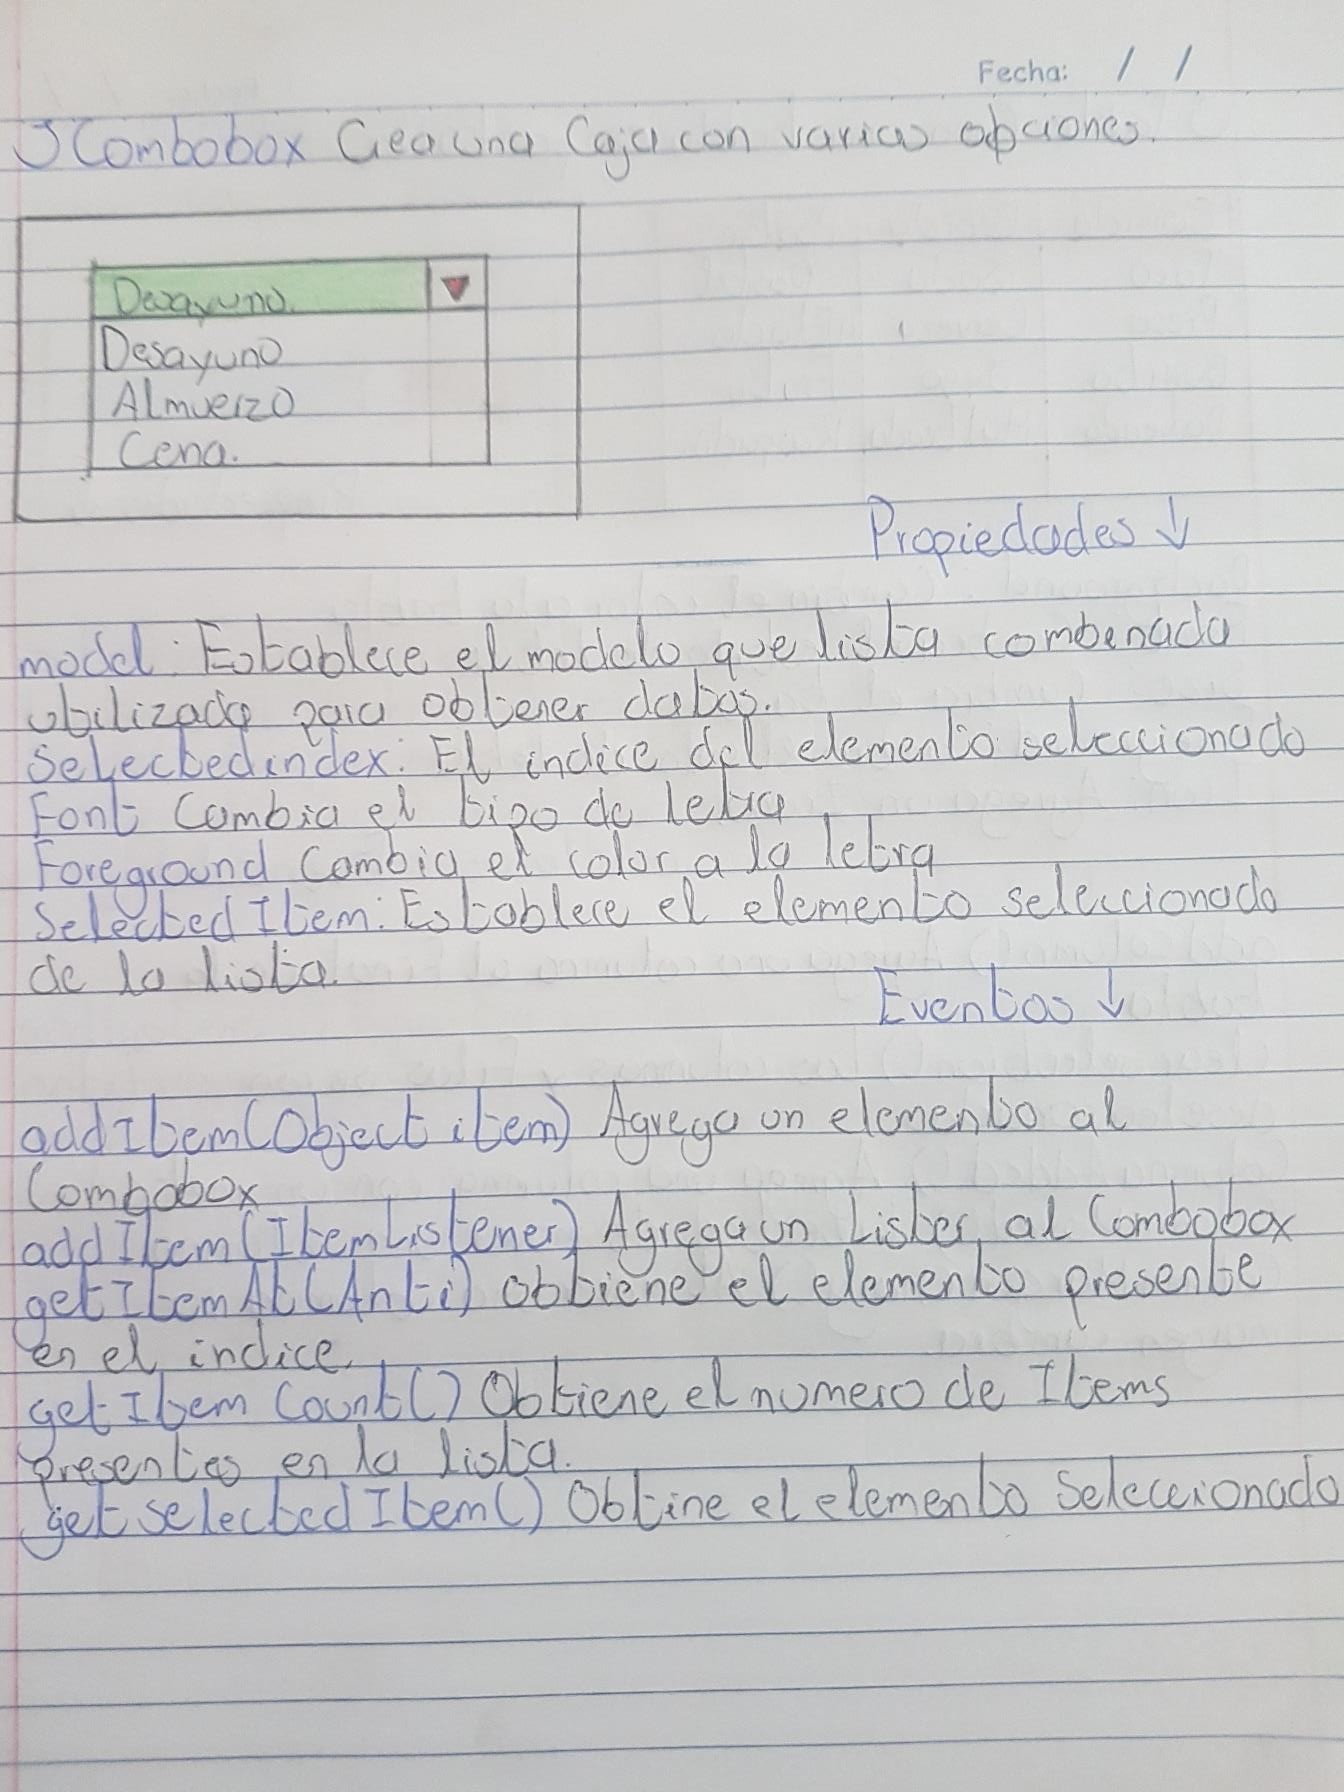 Fecha: / /
JCombobox Crea una Caja con varias opciones.
Desayuno.
Desayuno
Almuerzo
Cena.
Propiedades ↓
model: Establece el modelo que lista combenada
utilizado para obtener datos.
Selectedindex: El indice del elemento seleccionado
Font Cambia el tipo de letra
Foreground Cambia el color a la letra
Selected Item: Establece el elemento seleccionado
de la lista.
Eventos ↓
addItem(Object item) Agrega un elemento al
Combobox
addItem(ItemListener) Agrega un Lister al Combobox
getItemAt(Anti) obtiene el elemento presente
en el indice.
get Item Count() Obtiene el numero de Items
presentes en la lista.
get selected Item() Obtine el elemento Seleccionado